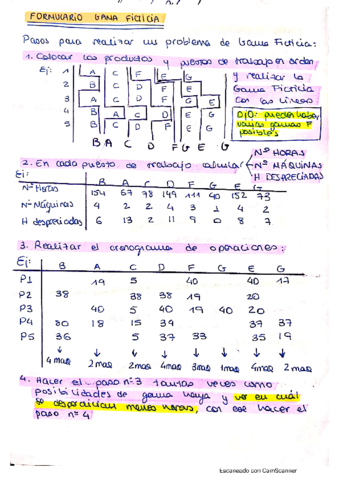 FORMULARIO GAMA FICTICIA
Pasos para realizar un problema de Gama Ficticia:
1. Colocar los productos y puestos de trabajo en orden
Ej:
y realizar la
Gama Ficticia
con las líneas
OJO: pueden haber
varias gamas F
posibles
1 A C F E G
2 B C D F E
3 A C D F G E
4 B A C D E G
5 B C D F E G
B A C D F G E G
2. En cada puesto de trabajo calcular
Nº HORAS
Nº MÁQUINAS
H DESPRECIADAS
Ej:
B A C D F G E G
Nº Horas 154 67 78 149 111 40 152 73
Nº Máquinas 4 2 2 4 3 1 4 2
H despreciadas 6 13 2 11 9 0 8 7
3. Realizar el cronograma de operaciones:
Ej:
B A C D F G E G
P1 19 5 40 40 17
P2 38 38 38 19 20
P3 40 5 40 19 40 20
P4 80 18 15 34 37 37
P5 36 5 37 33 35 19
4 maq 2 maq 2 maq 4 maq 3 maq 1 maq 4 maq 2 maq
4. Hacer el paso nº 3 tantas veces como
posibilidades de gama haya y ver en cuál
se desperdician menos horas, con ese hacer el
paso nº 4
Escaneado con CamScanner